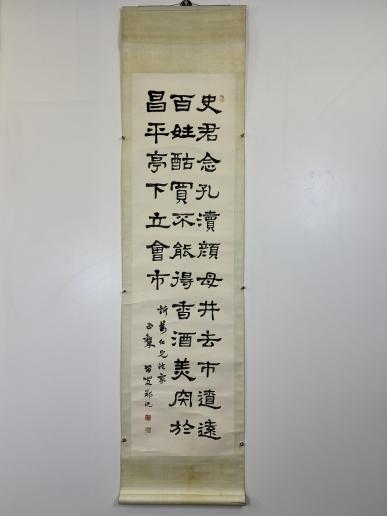 史君念孔瀆顏母井去市遼遠
百姓酤買不能得香酒美宍於
昌平亭下立會市
仁兄法家
正
鄭沅